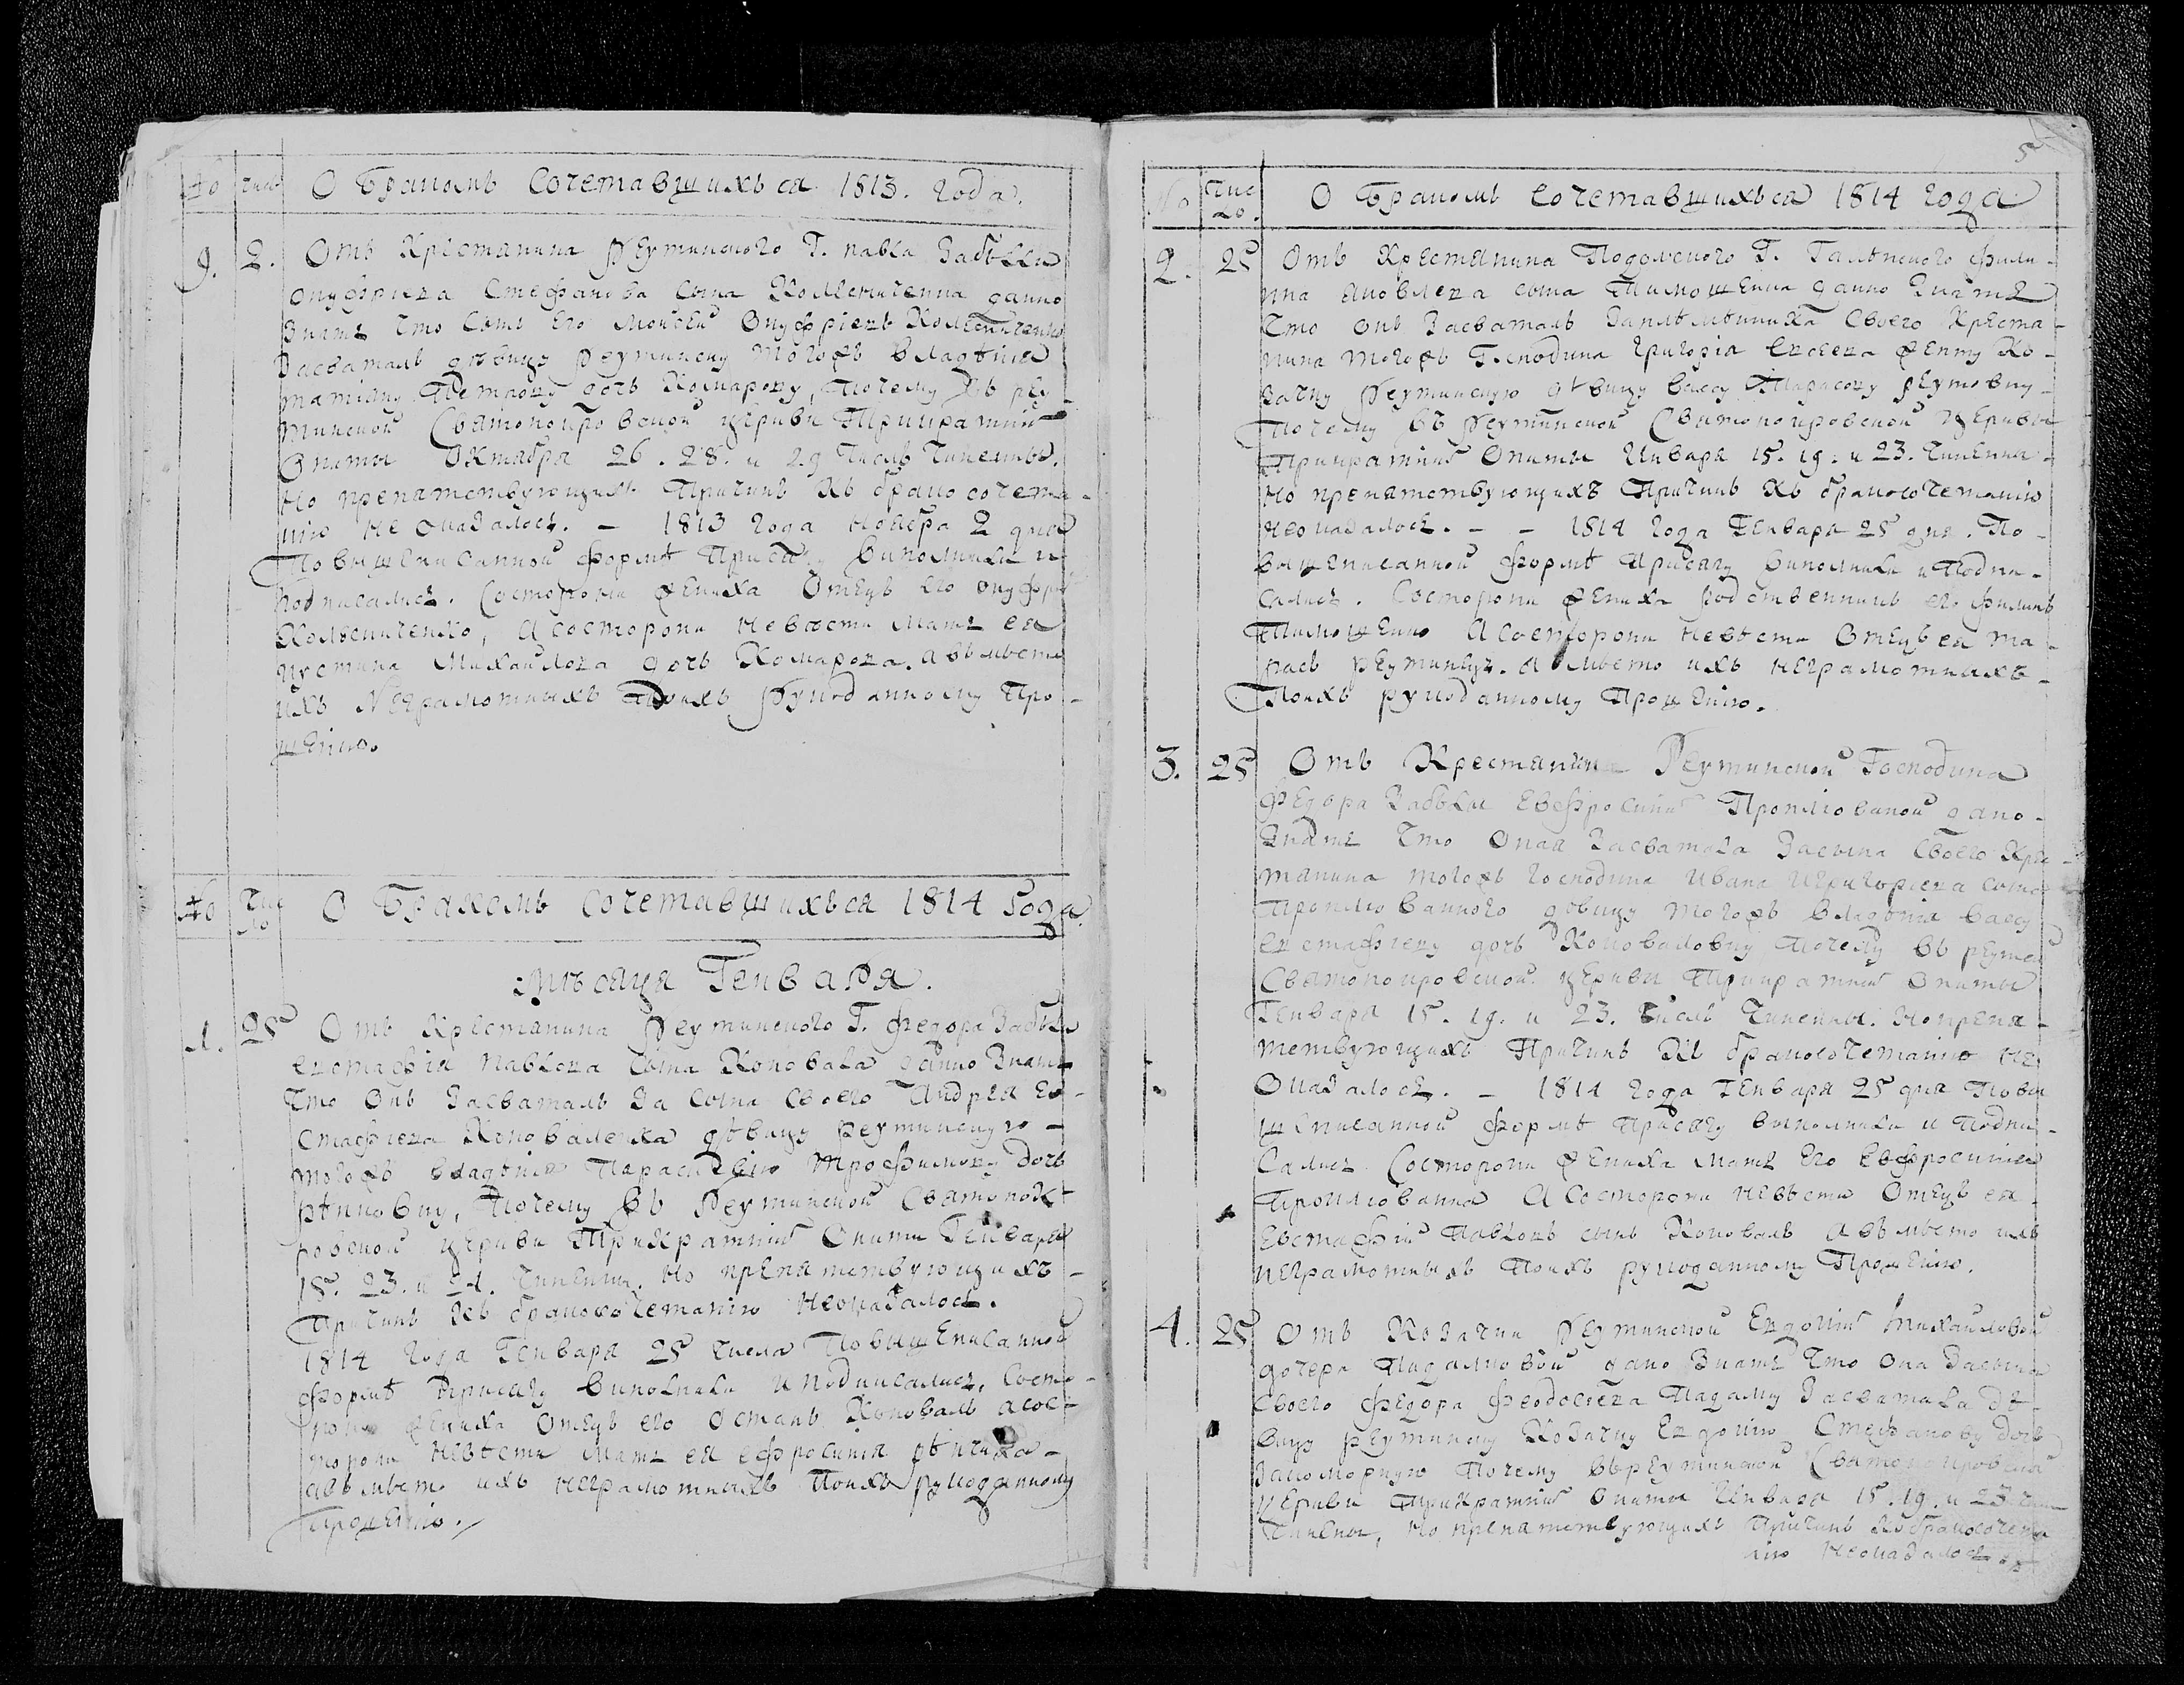 № число О Бракомъ Сочетавшихъся 1813. года.
9. 2. Отъ Крестянина Реутинского Г. павла Забѣлы
онуфриева Стефанова сына Колесниченка данно
Знать что Сынъ Его Моисей Онуфріевъ Колесниченко
Засваталъ девицу Реутинску тогожъ Владѣния
татіяну Петрову дочь Комарову, Почему въ реу-
тинской Святопокровской церкви Трикратнии
Опиты Октября 26. 28. и 29 Числъ Чинены.
Но препятствующихъ Причинъ Къ брако сочета-
нию не оказалось. - 1813 года Ноября 2 дня
По вышеписанной формѣ Присягу виполнили и
подписались. Состороны жениха Отецъ его онуфрий
Колесниченко, А состороны невѣсты Мать ея
иустина Михайлова дочь Комарова. А вѣмѣсто
ихъ Неграмотныхъ Поихъ Рукоданному Про-
шению.
№ Число О Бракомъ Сочетавшихъся 1814 Года
Мѣсяця Генваря.
1. 25 Отъ Крестянина Реутинского Г. Федора Забѣлы
евстафія павлова сына Коновала данно Знать
Что Онъ Засваталъ За сына своего Андрея Ев-
стафиева Коноваленка девицу реутинскую -
тогожъ владѣния Параскевию Трофимову дочь
рѣпиовну, Почему Въ Реутинской Святопок-
ровской церкви Трикратнии Опити Генваря
15. 23. и 24. Чинены. Но препятствующихъ -
Причинъ Къ бракосочетанию Неоказалось.
1814 Года Генваря 25 числа Повышеписанной
формѣ присягу виполнили и подписались. Состо-
роны жениха Отецъ его Остапъ Коновалъ А сос-
тороны невѣсты Мать ея ефросиния рѣпиха -
авъмѣсто ихъ неграмотныхъ Поихъ рукоданному
прошению.
5
№ Чис ло. О Бракомъ Сочетавшихъся 1814 года
2. 25 Отъ Крестянина Подолского Г. Галѣнского Фили-
па Яковлева сына Тимошенка данно Знать
Что онъ Засваталъ Заплѣмѣнника Своего Креста-
нина тогожъ Господина Григорія Евсеева женту Ко-
зачку Реутинскую дѣвицу вассу Тарасову реутовну -
Почему Въ Реутинской Святопокровской Церкви
Трикратнии Опиты Ивваря 15. 19. и 23. Чинены -
Но препятствующихъ Причинъ Къ бракосочетанию
неоказалось. - - 1814 года Генваря 25 дня. По-
вышеписанной формѣ присягу виполнили и Подпи-
сались. Состороны жениха родственникъ его филипъ
Тимошенко А Состороны невѣсты Отецъ ея та-
расъ реутинець. А вмѣсто ихъ неграмотныхъ -
Поихъ рукоданному Прошению.
3. 25 Отъ Крестянина Реутинской Господина
Федора Забѣлы Евфросинии дано -
Знать Что Оная Засватала Засына своего Кре-
тянина тогожъ господина Ивана Игригориева сына
дѣвицу тогожъ владѣния вассу
евстафиеву дочь Коноваловну Почему въ реутин
Святопокровской церкви Трикратнии Опиты
Генваря 15. 19. и 23. Числъ Чинены. Но препя-
тствующихъ Причинъ Къ бракосочетанию не
Оказалось. - 1814 года Генваря 25 дня Повы
шеписанной формѣ Присягу выполнили и Подпи-
сались. Состороны жениха мать Его Евфросиния
А Состороны невѣсты Отецъ ея -
Евстафий Павловъ сынъ Коновалъ А въмѣсто ихъ
неграмотныхъ Поихъ рукоданному Прошению.
4. 25 Отъ Козачки Реутинской Евдокии Михайловой
дочери дано Знать Что Она Засына
своего Федора Феодосиева Засватала Дѣ-
вицу реутинску Козачку Евдокию Стефанову дочь
Почему въреутинской Святопокровской
Церкви Трикратнии Опиты Инваря 15. 19. и 23 Числ
Чинены, Но препятствующихъ Причинъ Кобракосочета
нию Неоказалось